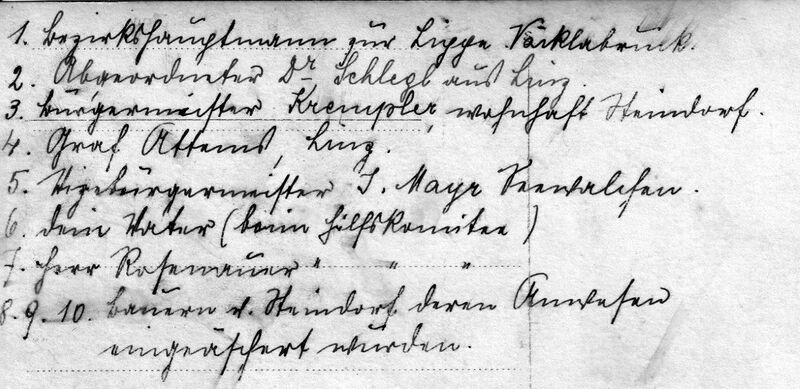 1. Bezirkshauptmann zur Lippe Vöcklabruck.
2. Abgeordneter Dr Schlegl aus Linz.
3. Bürgermeister Krempler, wohnhaft Steindorf.
4. Graf Attems, Linz.
5. Vizebürgermeister J. Mayr Seewalchen.
6. dein Vater (beim Hilfskomitee)
7. Herr Rosenauer " " "
8. 9. 10. Bauern v. Steindorf deren Anwesen
eingeäschert wurden.